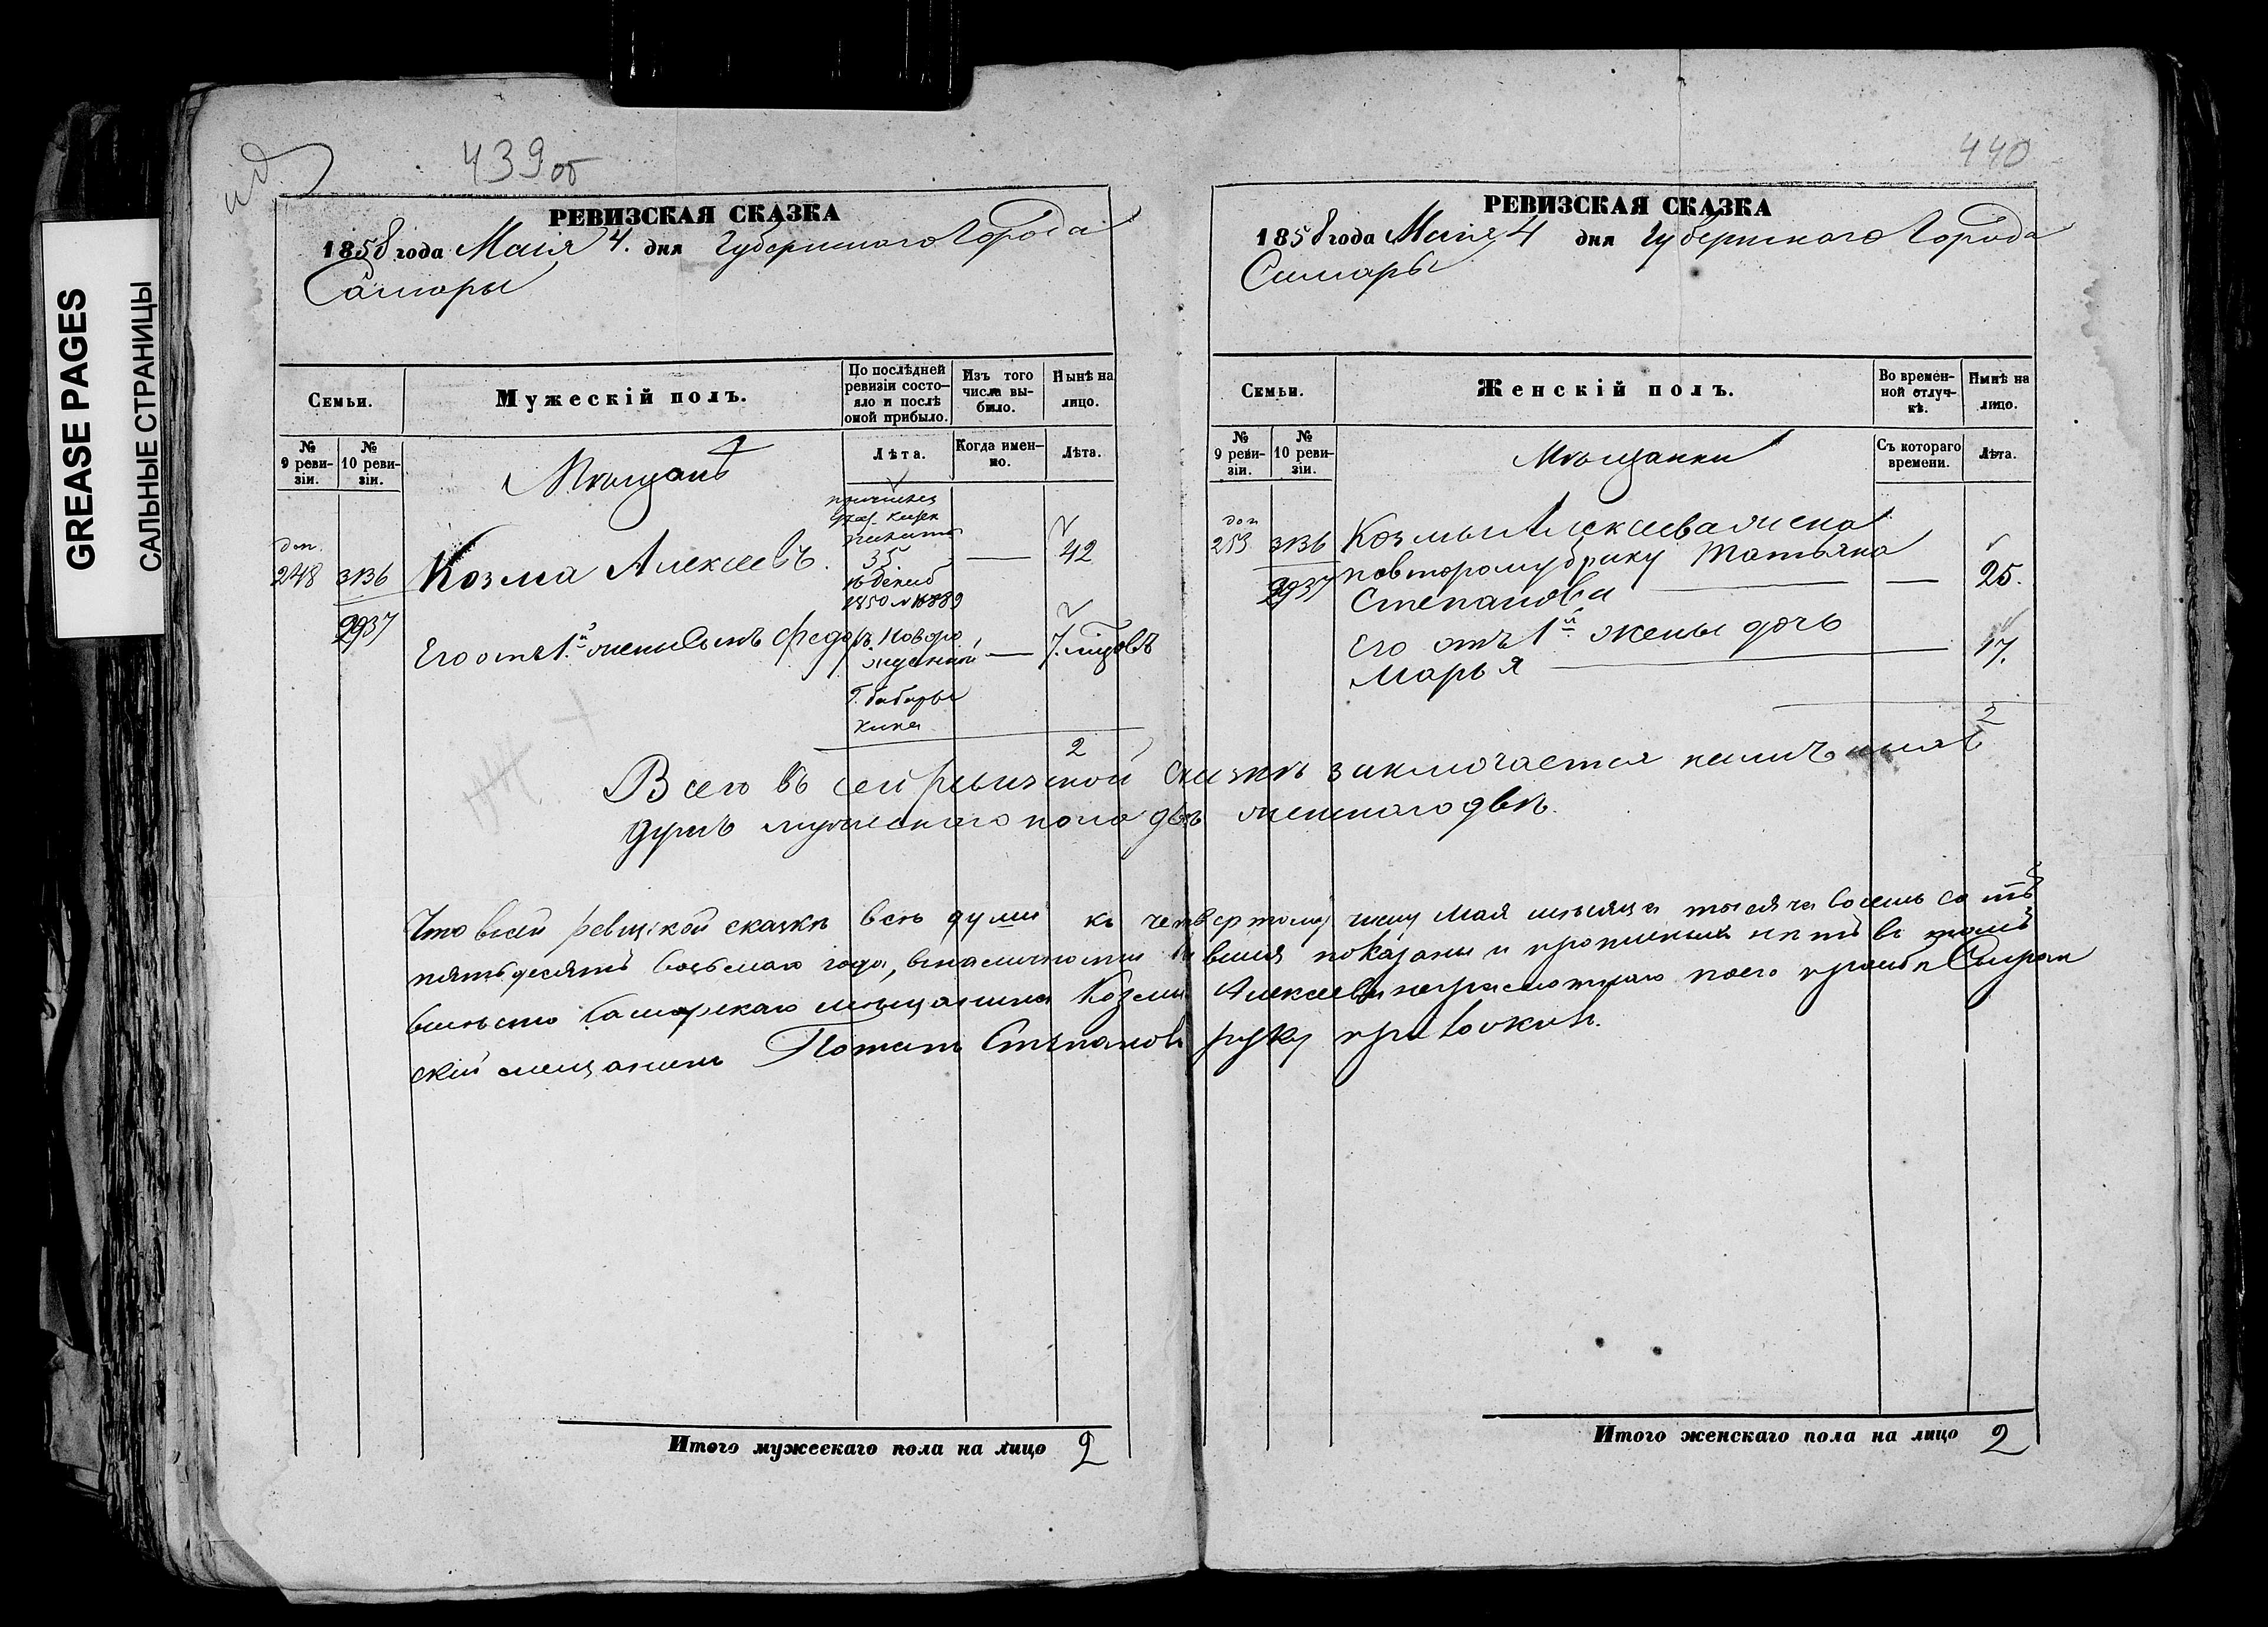 GREASE PAGES
САЛЬНЫЕ СТРАНИЦЫ
439 об
РЕВИЗСКАЯ СКАЗКА
1858 года Маія 4. дня Губернскаго Города
Самары
Семьи.
Мужескій полъ.
По послѣдней ревизіи состояло и послѣ оной прибыло.
Изъ того числа выбыло.
Нынѣ на лицо.
№ 9 ревизіи.
№ 10 ревизіи.
Мѣщанъ
Лѣта.
Когда именно.
Лѣта.
доп. 248
3136
2937
Козма Алексеевъ.
35
1850 № 16889
—
42
Его отъ 1й жены сынъ Федоръ
Новорожденной
—
7. лѣтъ
2
440
РЕВИЗСКАЯ СКАЗКА
1858 года Маія 4 дня Губернскаго Города
Самары
Семьи.
Женскій полъ.
Во временной отлучкѣ.
Нынѣ на лицо.
№ 9 ревизіи.
№ 10 ревизіи.
Мѣщанки
Съ котораго времени.
Лѣта.
доп 253
3136
2937
Козмы Алексеева жена
по второму браку Татьяна
Степанова
—
25.
Его отъ 1й жены дочь
Марья
17.
2
Всего въ сей ревизской сказкѣ заключается налич
душъ мужескаго пола двѣ женскаго двѣ.
Что в сей ревизской сказкѣ всѣ души къ четвертому числу Мая мѣсяца тысяча восемь сотъ
пятьдесятъ восьмаго года, показаны и прописныхъ нѣтъ въ томъ
вмѣсто Самарскаго мѣщанина Козмы Алексеева неграмотнаго по его прозбѣ Сызран
скій мещанинъ Потапъ Степановъ руку приложилъ.
Итого мужескаго пола на лицо 2
Итого женскаго пола на лицо 2